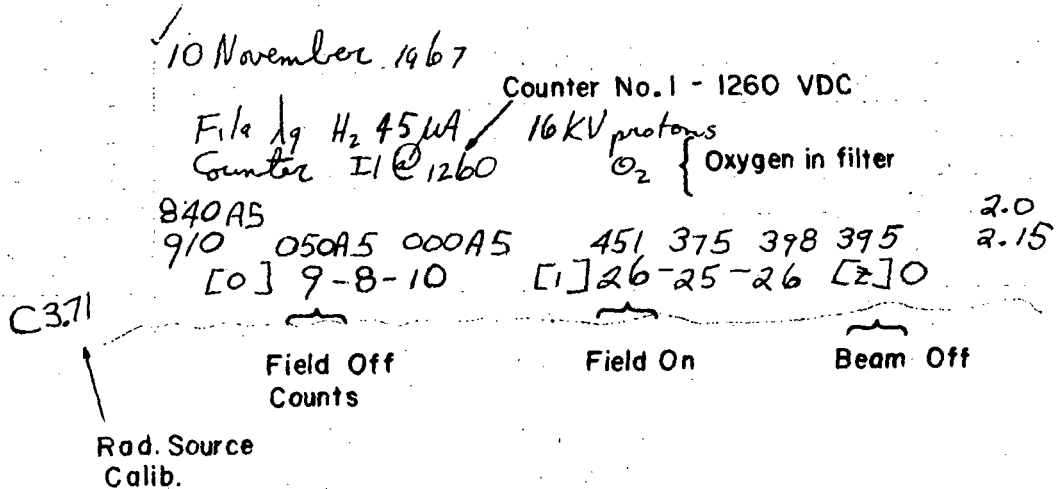 10 November 1967
Counter No.1 - 1260 VDC
H₂ 45 μA 16 KV protons
Counter I1 @ 1260 O₂ { Oxygen in filter
840A5 2.0
910 050A5 000A5 451 375 398 395 2.15
[0] 9-8-10 [1] 26-25-26 [2] 0
C3.71
Field Off Field On Beam Off
Counts
Rad. Source
Calib.